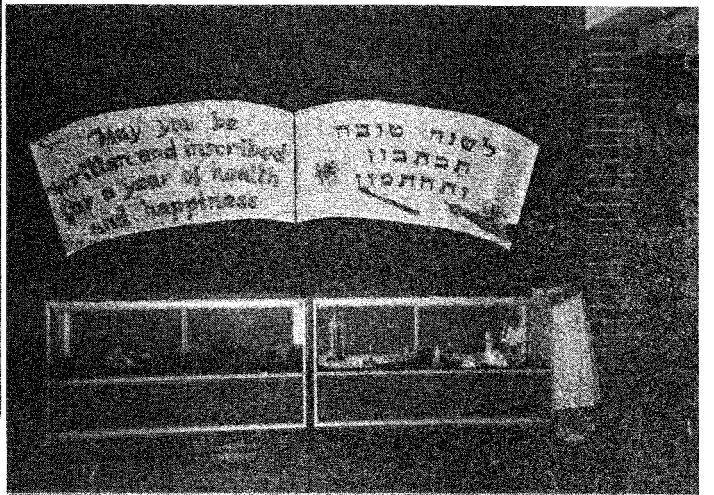 May you be
written and inscribed
for a year of health
and happiness
לשנה טובה
תכתבון
ותחתמון